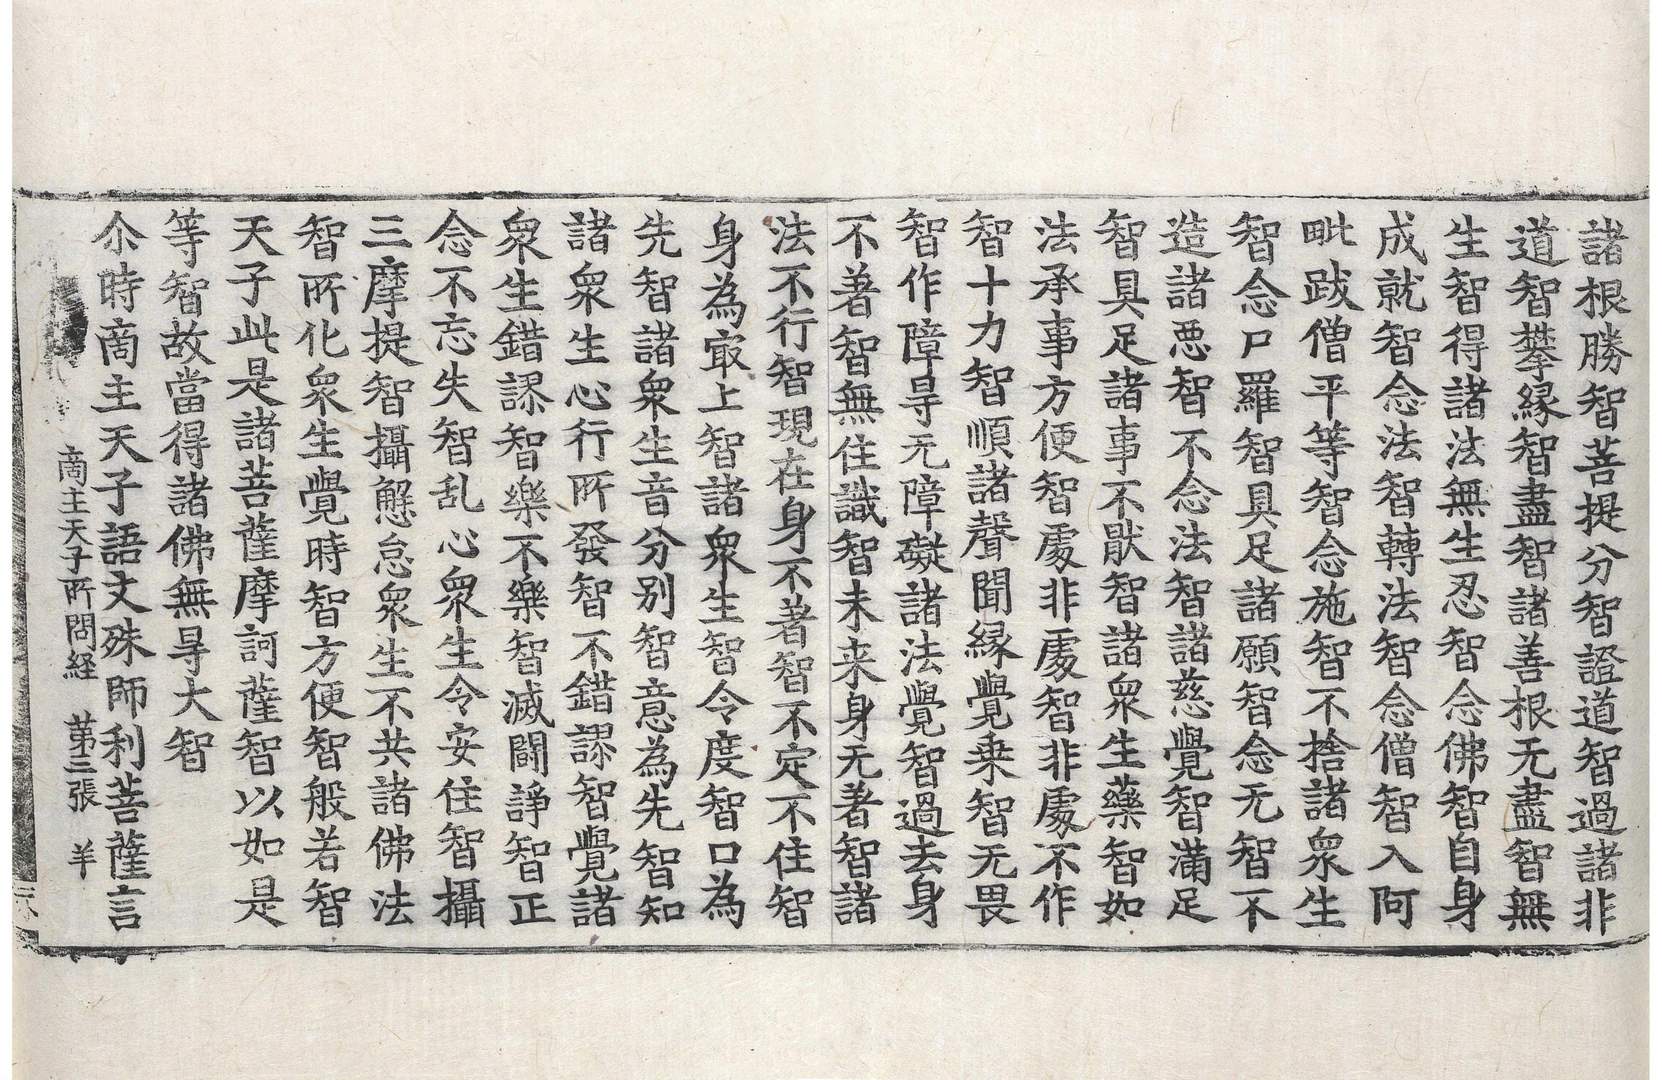 諸根勝智菩提分智證道智過諸非
道智攀緣智盡智諸善根无盡智無
生智得諸法無生忍智念佛智自身
成就智念法智轉法智念僧智入阿
毗跋僧平等智念施智不捨諸衆生
智念尸羅智具足諸願智念无智不
造諸悪智不念法智諸慈覺智滿足
智具足諸事不猒智諸衆生藥智如
法承事方便智處非處智非處不作
智十力智順諸聲聞緣覺乗智无畏
智作障㝵无障礙諸法覺智過去身
不著智無住識智未来身无著智諸
法不行智現在身不著智不定不住智
身為㝡上智諸衆生智令度智口為
先智諸衆生音分別智意為先智知
諸衆生心行所發智不錯謬智覺諸
衆生錯謬智樂不樂智滅鬪諍智正
念不忘失智乱心衆生令安住智攝
三摩提智攝懈怠衆生不共諸佛法
智所化衆生覺時智方便智般若智
天子此是諸菩薩摩訶薩智以如是
等智故當得諸佛無㝵大智
尒時商主天子語文殊師利菩薩言
商主天子所問経 苐三張 羊